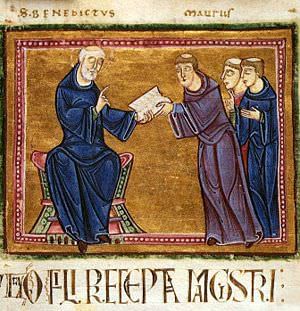 S·BENEDICTVS MAVRVS
O FILI PRECEPTA MAGISTRI: